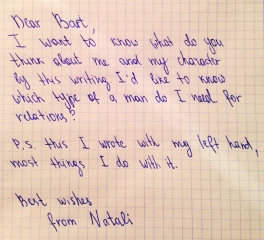 Dear Bart,
I want to know what do you
think about me and my character
by this writing I'd like to know
which type of a man do I need for
relations?
P.S. this I wrote with my left hand,
most things I do with it.
Best wishes
from Natali